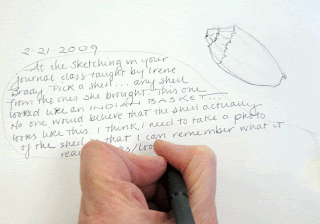 2-21-2009
At the sketching in your
journal class taught by Irene
Brady. Pick a shell... any shell
from the ones she brought. This one
looked like an INDIAN BASKET....
No one would believe that the shell actually
looks like this. I think I need to take a photo
of the shell so that I can remember what it
really looks/loo